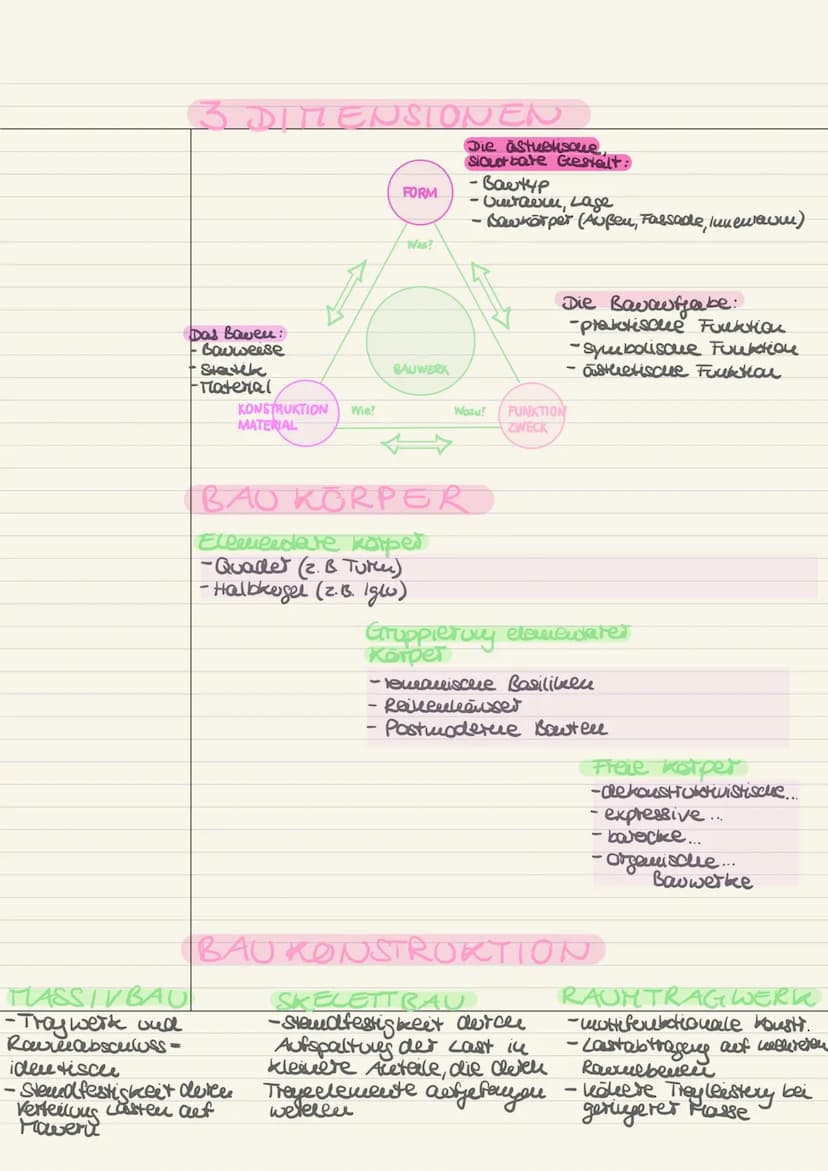 3 DIMENSIONEN
Die ästhetische,
sichtbare Gestalt:
FORM
- Bautyp
- Umraum, Lage
- Baukörper (Außen, Fassade, Innenraum)
Was?
Die Bauaufgabe:
- praktische Funktion
- symbolische Funktion
- ästhetische Funktion
Das Bauen:
- Bauweise
- Statik
- Material
BAUWERK
KONSTRUKTION
MATERIAL
Wie?
Wozu?
FUNKTION
ZWECK
BAUKÖRPER
Elementare Körper
- Quader (z.B. Turm)
- Halbkugel (z.B. Iglu)
Gruppierung elementarer
Körper
- romanische Basiliken
- Reihenhäuser
- Postmoderne Bauten
Freie Körper
- dekonstruktivistische...
- expressive...
- barocke...
- organische...
Bauwerke
BAUKONSTRUKTION
MASSIVBAU
- Tragwerk und
Raumabschluss =
identisch
- Standfestigkeit durch
Verteilung Lasten auf
Mauern
SKELETTBAU
- Standfestigkeit durch
Aufspaltung der Last in
kleinere Anteile, die durch
Tragelemente aufgefangen
werden
RAUMTRAGWERK
- multifunktionale Konstr.
- Lastabtragung auf mehreren
Raumebenen
- höhere Tragleistung bei
geringerer Masse